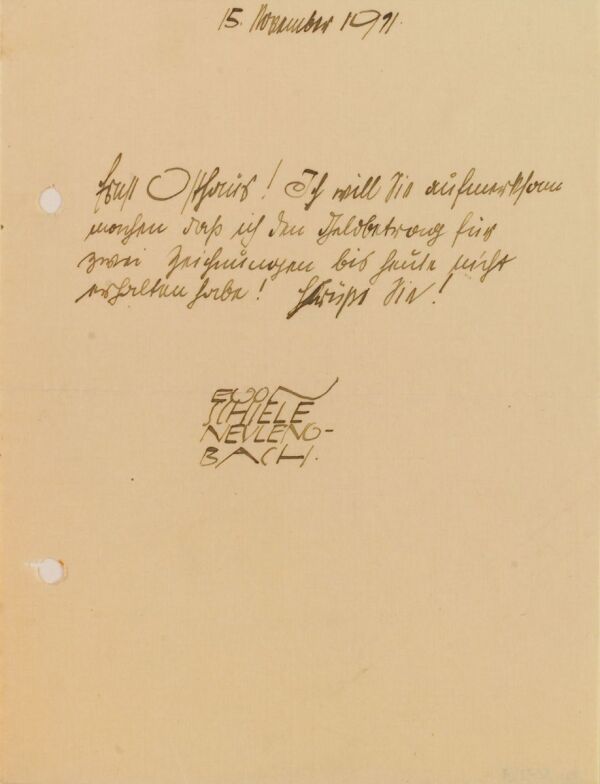 15. November 1911.
Ernst Osthaus! Ich will Sie aufmerksam
machen daß ich den Geldbetrag für
zwei Zeichnungen bis heute nicht
erhalten habe! Grüße Sie!
EGON
SCHIELE
NEULENG-
BACH.